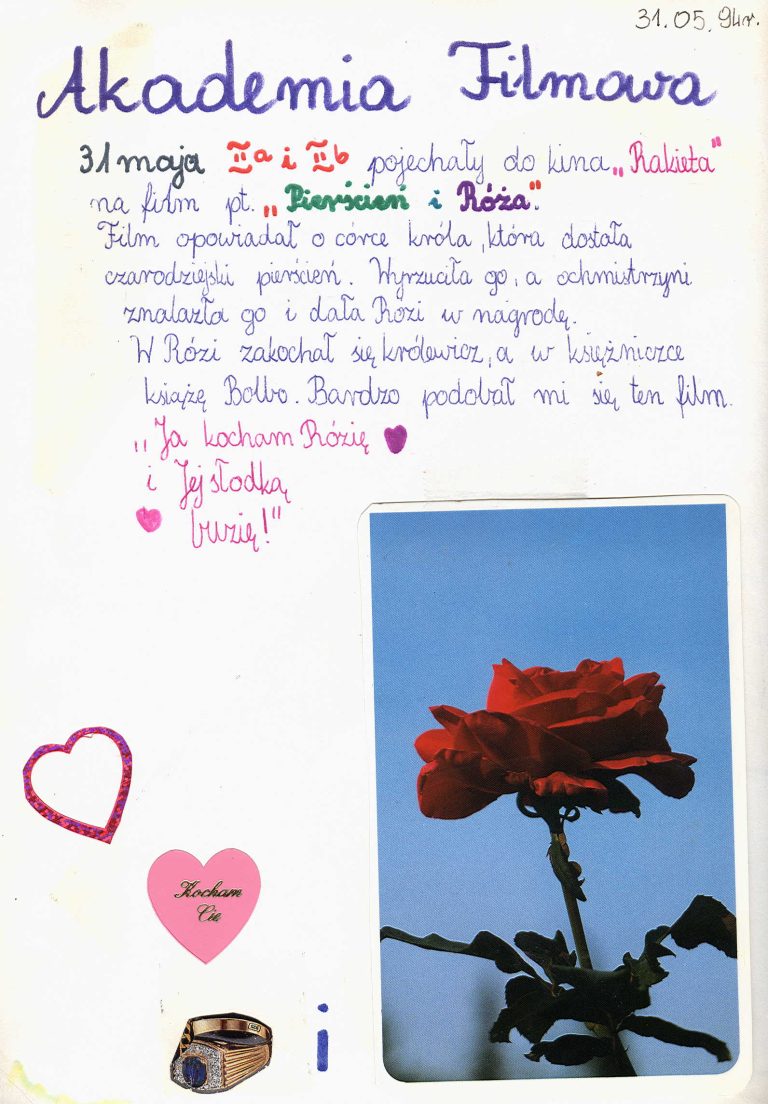 31.05.94r.
Akademia Filmowa
31 maja IIa i IIb pojechały do kina „Rakieta"
na film pt. „Pierścień i Róża".
Film opowiadał o córce króla, która dostała
czarodziejski pierścień. Wyrzuciła go, a ochmistrzyni
znalazła go i dała Rózi w nagrodę.
W Rózi zakochał się królewicz, a w księżniczce
książę Bolbo. Bardzo podobał mi się ten film.
„Ja kocham Rózię
i Jej słodką
buzię!"
Kocham
Cię
i